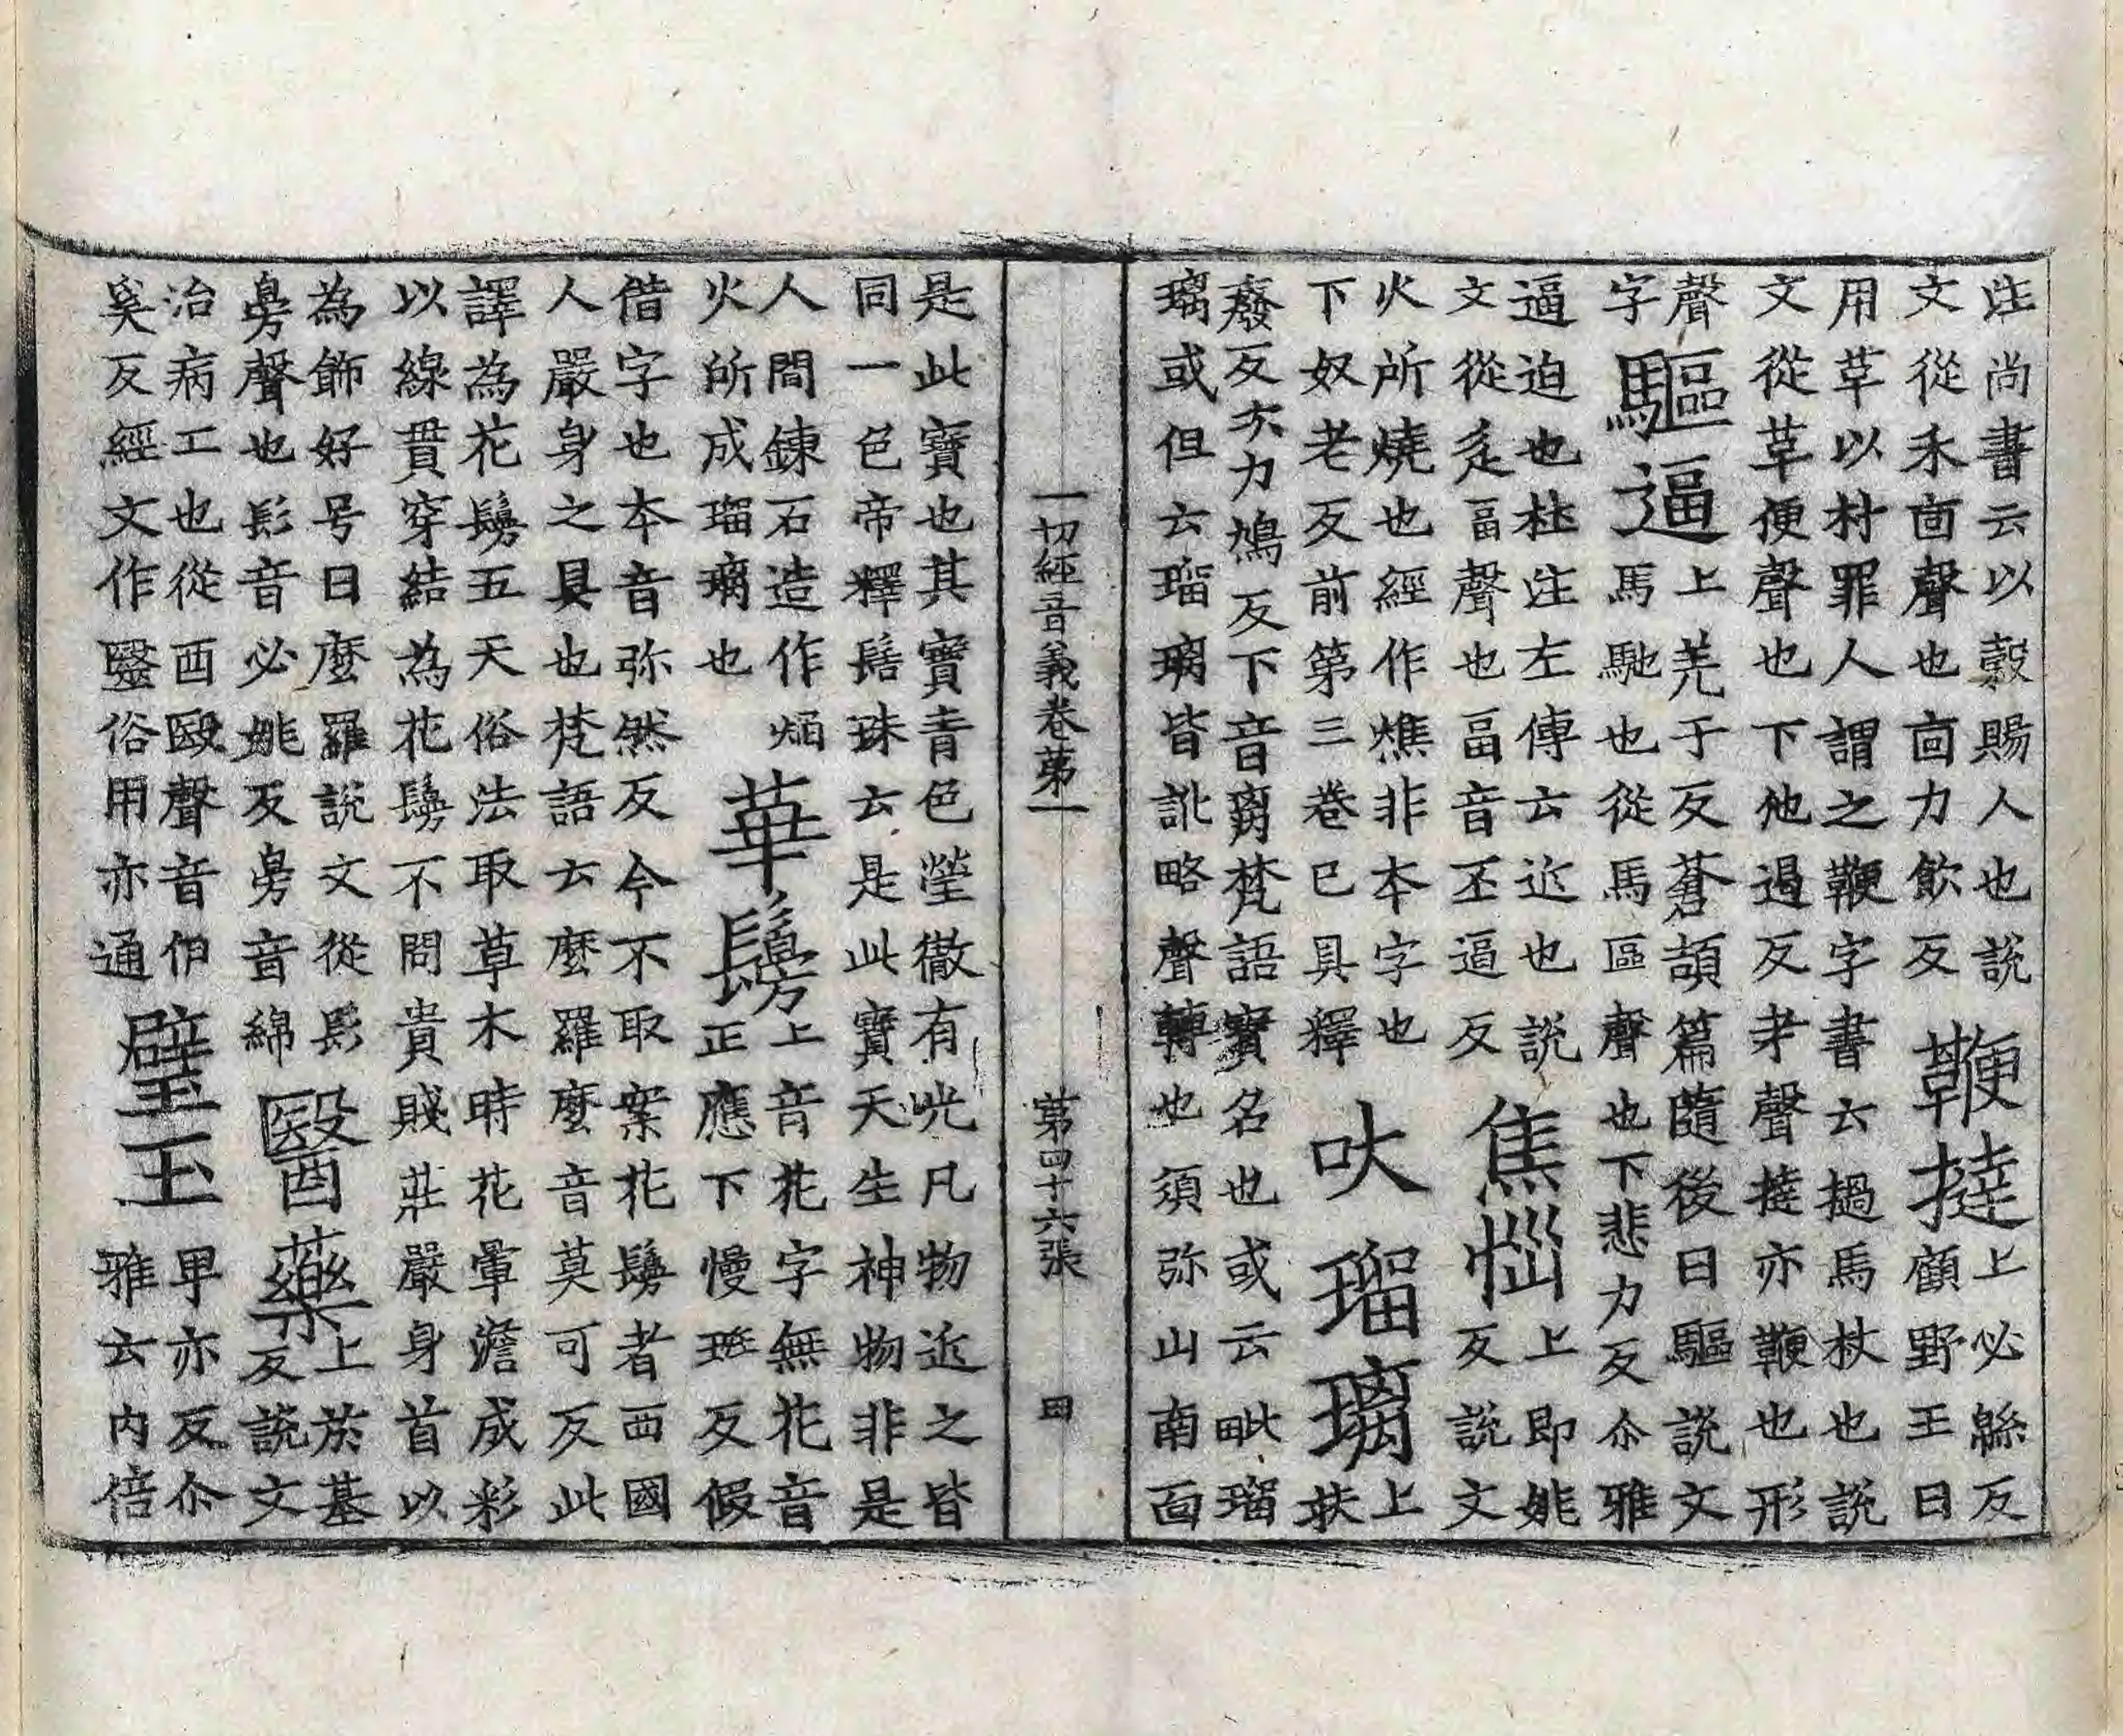 注尚書云以穀賜人也說
文從禾㐭聲也㐭力飲反
鞭撻
上必緜反
顧野王曰
用革以村罪人謂之鞭字書云撾馬杖也說
文從革便聲也下他過反才聲撻亦鞭也形
聲
字
驅逼
上羌于反蒼頡篇隨後曰驅說文
馬馳也從馬區聲也下悲力反尒雅
逼迫也杜注左傳云近也說
文從辵畐聲也畐音丕逼反
焦惱
上即姚
反說文
火所燒也經作燋非本字也
下奴老反前第三卷已具釋
吠瑠璃
上
扶
癈反次力鳩反下音离梵語寶名也或云毗瑠
璃或但云瑠璃皆訛略聲轉也須弥山南面
一切經音義卷苐一
苐四十六張
囗
是此寶也其寶青色瑩徹有光凡物近之皆
同一色帝釋髻珠云是此寶天生神物非是
人間鍊石造作焰
火所成瑠璃也
華鬘
上音花字無花音
正應下慢班反假
借字也本音弥然反今不取案花鬘者西國
人嚴身之具也梵語云麼羅麼音莫可反此
譯為花鬘五天俗法取草木時花暈澹成彩
以線貫穿結為花鬘不問貴賤莊嚴身首以
為飾好号曰麼羅說文從髟
臱聲也髟音必姚反臱音綿
醫藥
上於基
反說文
治病工也從酉殹聲音伯
奚反經文作毉俗用亦通
璧玉
卑亦反尒
雅云內倍